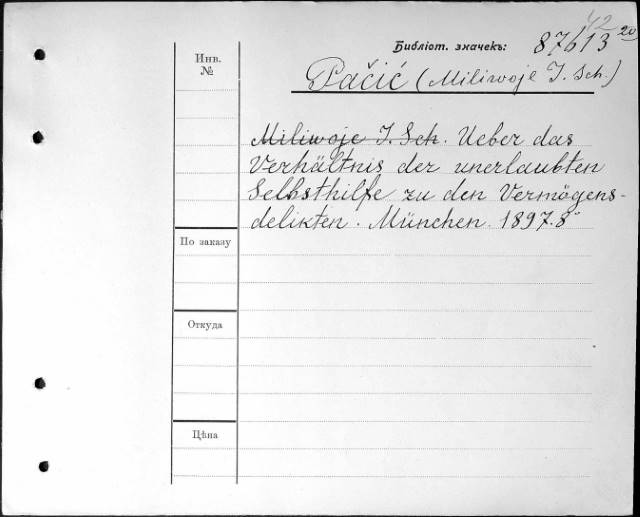 42
Библіот. значекъ: 87613 20
Инв. №
Pačić (Miliwoje J. Sch.)
Miliwoje J. Sch. Ueber das
Verhältnis der unerlaubten
Selbsthilfe zu den Vermögens-
delikten. München. 1897. 8°
По заказу
Откуда
Цѣна